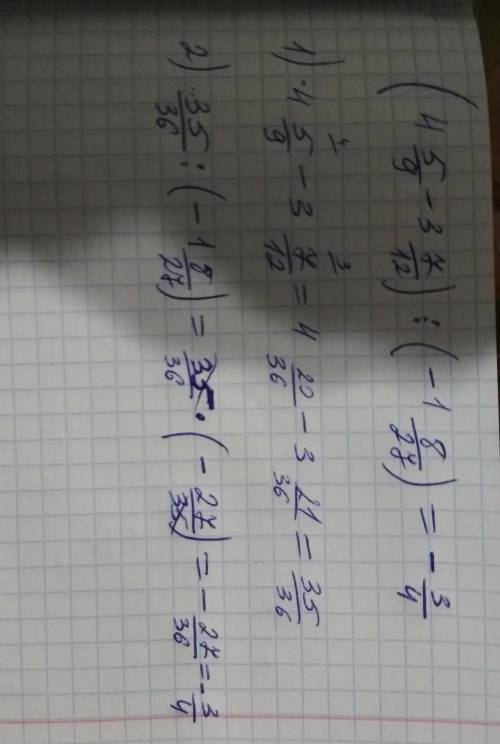 (4 5/9 - 3 7/12) : (-1 8/27) = - 3/4
1) 4 5/9 - 3 7/12 = 4 20/36 - 3 21/36 = 35/36
2) 35/36 : (-1 8/27) = 35/36 · (- 27/35) = - 27/36 = - 3/4